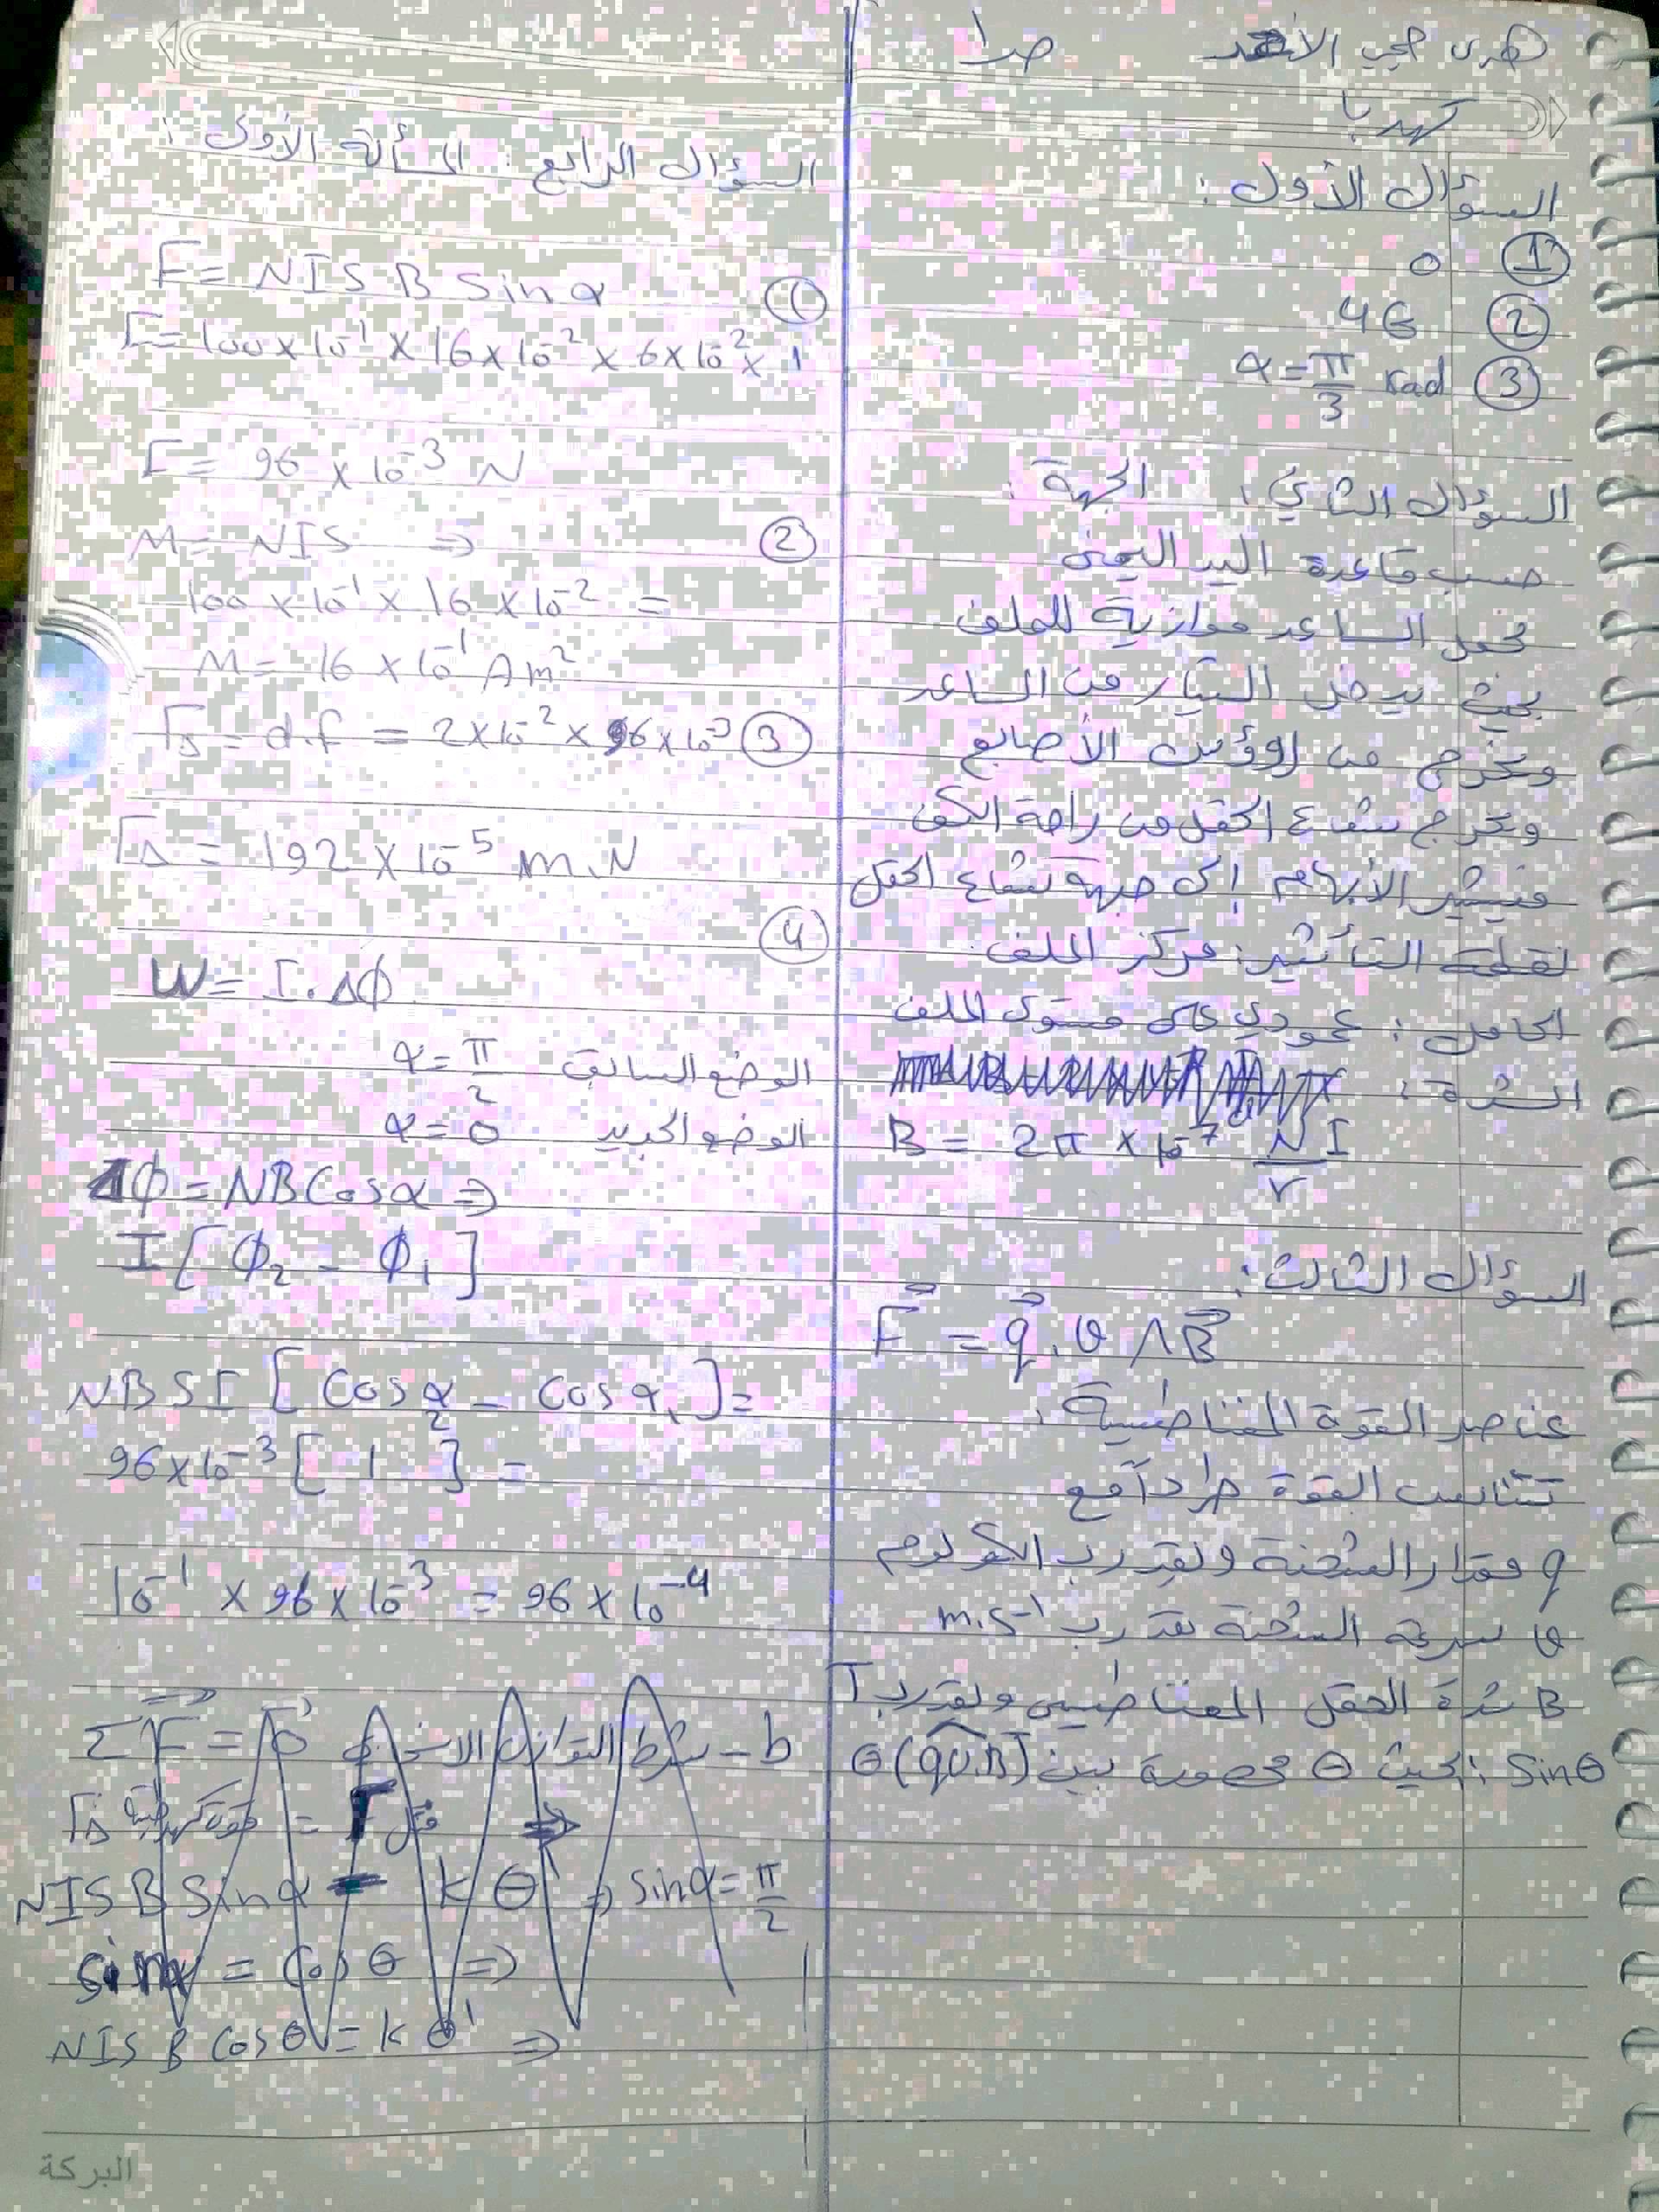 هدى صبحي الأحمد ص1
كهربا
السؤال الأول :
① 0
② 4G
③ α = π/3 rad
السؤال الثاني : الجهة :
حسب قاعدة اليد اليمنى
نجعل الساعد موازية للملف
بحيث يدخل التيار من الساعد
ويخرج من رؤوس الأصابع
ويخرج شعاع الحقل من راحة الكف
فيشير الأبهام إلى جهة شعاع الحقل
نقطة التأثير : مركز الملف
الحامل : عمودي على مستوى الملف
الشدة :
B = 2π × 10⁻⁷ NI/r
السؤال الثالث :
F⃗ = q⃗ . υ ∧ B⃗
عناصر القوة المغناطيسية :
تتناسب القوة طرداً مع
q مقدار الشحنة وتقدر ب الكولوم
υ سرعة الشحنة تقدر ب m.s⁻¹
B شدة الحقل المغناطيسي وتقدر ب T
Sinθ : بحيث θ محصورة بين θ(qυ.B)
السؤال الرابع : المسألة الأولى :
① Γ = NIS B Sin α
Γ = 100 × 10⁻¹ × 16 × 10⁻² × 6 × 10⁻² × 1
Γ = 96 × 10⁻³ N
② M = NIS ⇒
100 × 10⁻¹ × 16 × 10⁻² =
M = 16 × 10⁻¹ Am²
③ ΓΔ = d.f = 2×10⁻² × 96 × 10⁻³
ΓΔ = 192 × 10⁻⁵ m.N
④
W = I . ΔΦ
الوضع السابق α = π/2
الوضع الجديد α = 0
ΔΦ = NB Cosα ⇒
I [ Φ₂ - Φ₁ ]
NBSI [ Cosα₂ - Cosα₁ ] =
96×10⁻³ [ 1 ] =
10⁻¹ × 96 × 10⁻³ = 96 × 10⁻⁴
b - شرط التوازن ΣΓ⃗ = 0⃗
ΓΔ = Γ فتل ⇒
NIS B Sinα = k θ' ⇒ sinα = π/2
Sinα = Cosθ ⇒
NIS B Cosθ = k θ' ⇒
البركة